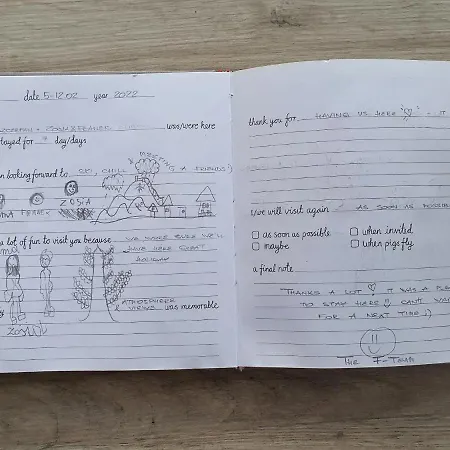 date 5-12.02 year 2022
was/were here
stayed for 7 day/days
looking forward to SKI, CHILL & MEETING A FRIENDS :)
ZOSIA
a lot of fun to visit you because WE WERE SURE WE'LL
HAVE HERE GREAT
HOLIDAY
ATMOSPHERE
& VIEWS was memorable
thank you for HAVING US HERE - IT
I/we will visit again AS SOON AS POSSIBLE
as soon as possible
when invited
maybe
when pigs fly
a final note
THANKS A LOT IT WAS A
TO STAY HERE CAN'T
FOR A NEXT TIME :)
THE F-TEAM